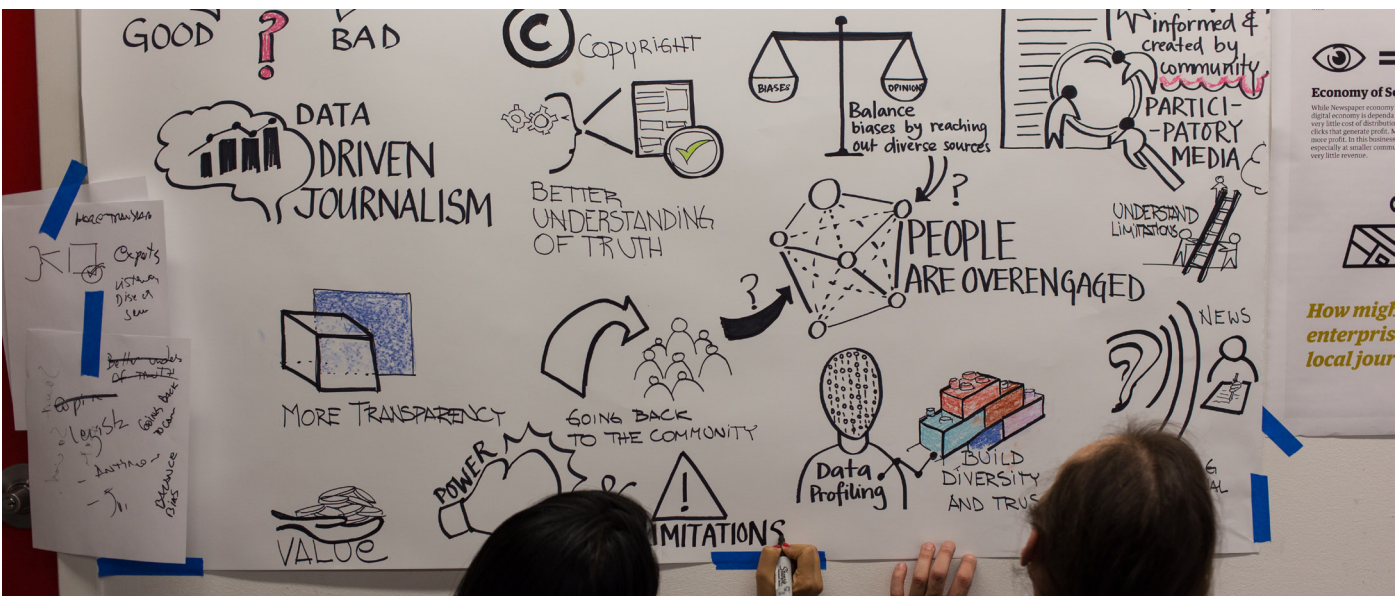 GOOD
?
BAD
© COPYRIGHT
BIASES
OPINION
Balance
biases by reaching
out diverse sources
informed &
created by
community
PARTICI-
-PATORY
MEDIA
DATA
DRIVEN
JOURNALISM
BETTER
UNDERSTANDING
OF TRUTH
?
PEOPLE
ARE OVERENGAGED
UNDERSTAND
LIMITATIONS
MORE TRANSPARENCY
GOING BACK
TO THE COMMUNITY
?
NEWS
Data
Profiling
BUILD
DIVERSITY
AND
VALUE
POWER
&
!
IMITATIONS
=
Economy of
While Newspaper economy
digital economy is
very little cost of
clicks that generate profit.
more profit. In this
especially at smaller
very little revenue.
How
local